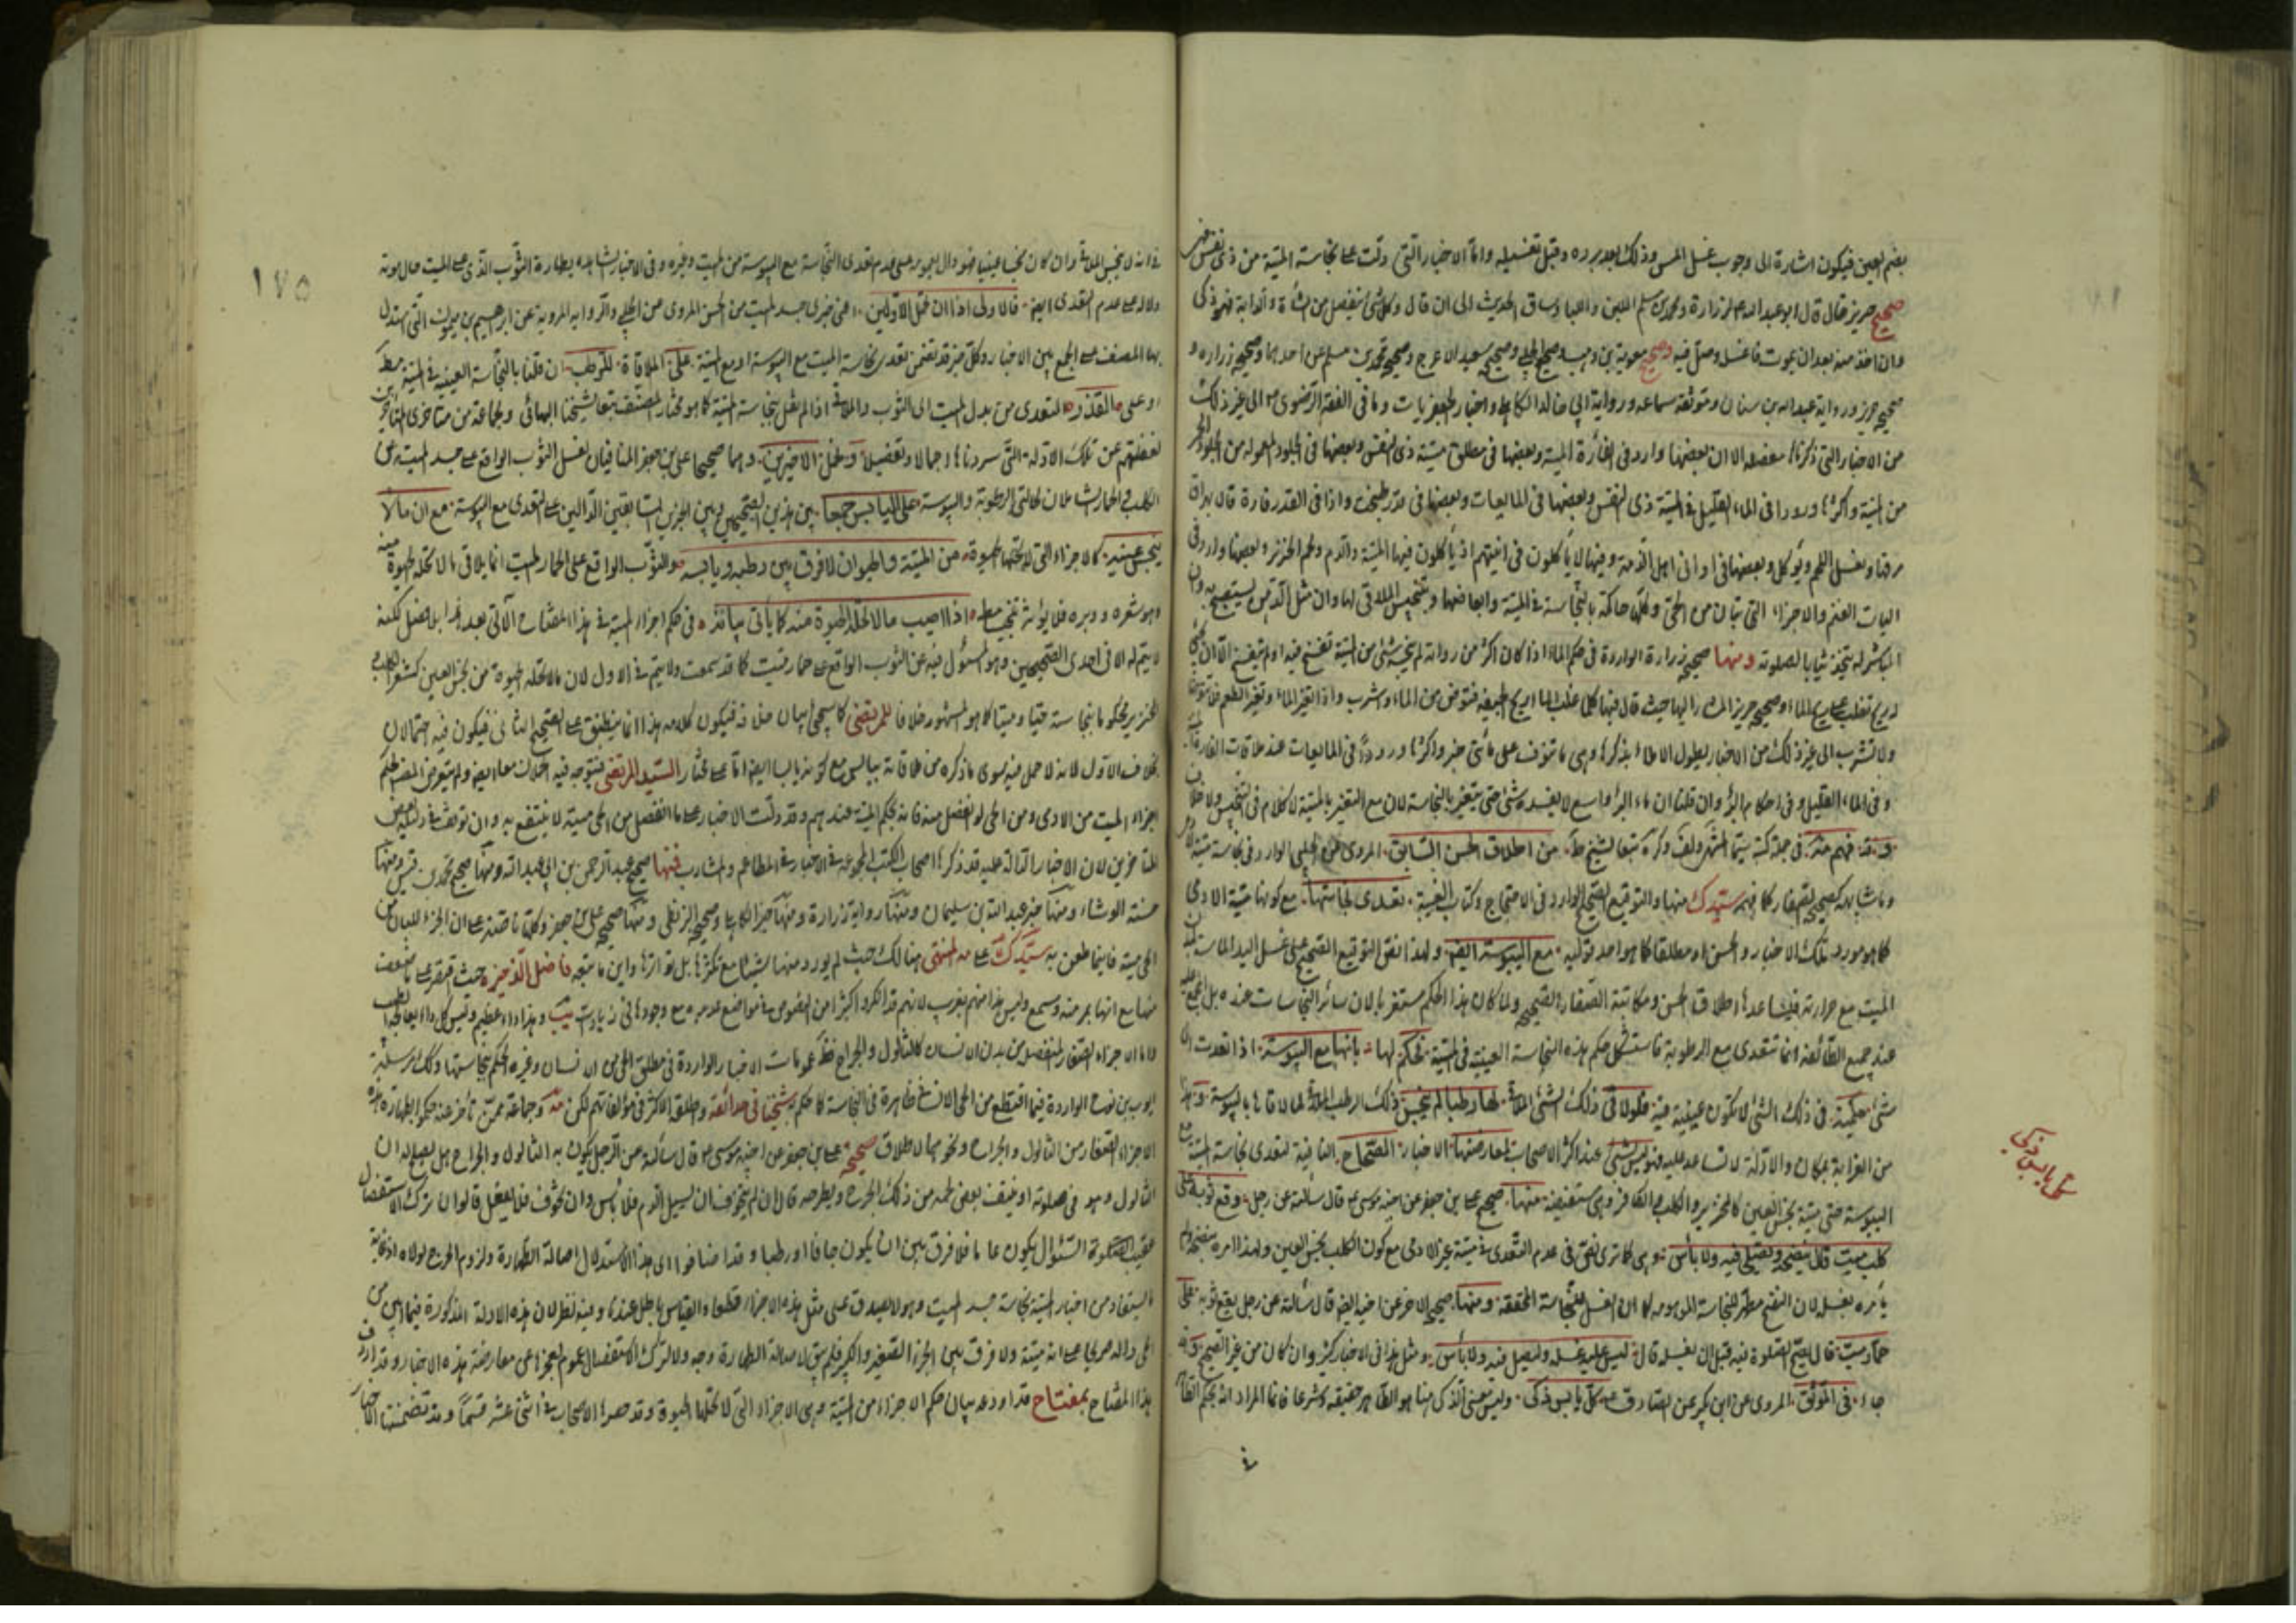 بضم العين فيكون اشارة الى وجوب غسل المس وذلك بعد برده وقبل تغسيله واما الاخبار التي دلت على نجاسة الميتة من ذى نفس
صحيح حريز قال قال ابو عبد الله لزرارة ومحمد بن مسلم اللبن واللباء وساق الحديث الى ان قال وكل شئ ينفصل من الشاة والدابة فهو ذكى
وان اخذته منه بعد ان يموت فاغسله وصل فيه وصحيح معوية بن وهب وصحيح الحلبي وصحيح سعيد الاعرج وصحيح محمد بن مسلم عن احدهما وصحيح زرارة و
صحيح حريز ورواية عبد الله بن سنان وموثقة سماعه ورواية ابي خالد الكابلي واخبار الجعفريات وما في الفقه الرضوى الى غير ذلك
من الاخبار التي ذكرناها مفصله الا ان بعضها وارد في الفأرة الميتة وبعضها في مطلق ميتة ذى النفس وبعضها في الجلود المعموله من الجلود
من الميتة واكثرها ورودا في الماء القليل في الميتة ذى النفس وبعضها في المايعات وبعضها في قدر طبخت واذا في القدر فارة قال يهراق
مرقها ويغسل اللحم ويؤكل وبعضها في اواني اهل الذمة وفيها لا ياكلون في انيتهم اذ ياكلون فيها الميتة والدم ولحم الخنزير وبعضها وارد في
اليات الغنم والاجزاء التي تبان من الحى وكلها حاكمة بالنجاسة في الميتة وابعاضها وبتنجيس الملاقى لها
المباشر له يتخذ ثيابا لصلوته ومنها صحيح زرارة الواردة في حكم الماء اذا كان اكثر من راوية لم ينجسه شئ من الميتة تفسخ فيه او لم يتفسخ الا ان يجئ
له ريح تغلب على ريح الماء وصحيح حريز المشار اليها حيث قال فيها كلما غلب الماء ريح الجيفه فتوضأ من الماء واشرب واذا تغير الماء وتغير الطعم فلا تتوضأ
ولا تشرب الى غير ذلك من الاخبار يطول الاملاء بذكرها وهى ما تنوف على مأتى خبر واكثرها ورودا في المايعات عند ملاقات الفارة
وفي الماء القليل وفي احكام البئر وان قلنا ان ماء البئر واسع لا يفسده شئ حتى يتغير بالنجاسة لان مع التغير بالميتة لا كلام في التنجيس
وقد فهم من اطلاق الحسن السابق المروى عن الحلبى الوارد في نجاسة ميتة
وما شابهه كصحيح الصفار منها والتوقيع الصحيح الوارد في الاحتجاج وكتاب الغيبة تعدى نجاستها مع كونها ميتة الادمى
كما هو مورد تلك الاخبار والحسن او مطلقا كما هو احد قوليه مع اليبوسة ايضا ولهذا اتفق التوقيع الصحيح على غسل اليد الماس
الميت مع حرارته فيساعدها اطلاق الحسن ومكاتبة الصفار الصحيح ولما كان هذا الحكم مستغربا لان سائر النجاسات عنده بل
عند جميع الطائفة انما تتعدى مع الرطوبة فاستشكل حكم هذه النجاسة العينية في الميتة فحكم لها بانها مع اليبوسة اذا تعدت الى
شئ حكمية في ذلك الشئ لا تكون عينية فيه فلو لاقى ذلك الشئ لها رطبا لم ينجس ذلك الرطب الملاقى لما لاقاها باليبوسة
من الغرابة بمكان والادلة لا تساعد عليه فهو ليس بشئ عند اكثر الاصحاب لمعارضتها الاخبار الصحاح النافية لتعدى نجاسة الميتة
اليبوسة حتى ميتة نجس العين كالخنزير والكلب والكافر وهى مستفيضة منها صحيح على بن جعفر عن اخيه موسى قال سألته عن رجل وقع ثوبه على
كلب ميت قال ينضحه ويصلى فيه ولا بأس وهى كما ترى نص في عدم التعدى في ميتة غير الادمى مع كون الكلب نجس العين ولهذا امره بنضحه ولم
يأمره بغسله لان النضح مطهر للنجاسة الموهومه كما ان الغسل للنجاسة المحققه ومنها صحيح الاخر عن اخيه ايضا قال سألته عن رجل يقع ثوبه على
حمار ميت قال ليس عليه غسله وليصل فيه ولا بأس ومثل هذا في الاخبار كثير وان كان من غير الصحيح وقد
جاء في الموثق المروى عن ابن بكير عن الصادق كل يابس ذكى وليس معنى الذكى هنا هو الطاهر حقيقة شرعا فانما المراد انه بحكم الطاهر
كل يابس ذكى
١٧٥
في انه لا ينجس الملاقى وان كان نجسا عينيا فهو دال بعمومه على عدم تعدى النجاسة مع اليبوسة من الميت وغيره وفي الاخبار الشاهدة بطهارة الثوب الذى على الميت حال موته
دلالة على عدم التعدى ايضا فالاولى اذا ان تحمل الاولين اعنى خبرى جسد الميت من الحسن المروى عن الحلبى والرواية المروية عن ابراهيم بن ميمون التي استدل
بها المصنف على الجمع بين الاخبار وكل خبر قد تضمن تعدى نجاسة الميت مع اليبوسة او مع الميتة على الملاقاة للرطب ان قلنا بالنجاسة العينية في الميتة
او على القذر المتعدى من بدل الميت الى الثوب والملاقى اذا لم نقل بنجاسة الميتة كما هو مختار المصنف تبعا لشيخنا البهائى ولجماعة من متأخرى المتأخرين
لغفلتهم عن تلك الادلة التي سردناها اجمالا وتفصيلا وتحمل الاخيرين وهما صحيحا على بن جعفر المنافيان لغسل الثوب الواقع على جسد الميت من
الكلب والحمار الشاملان لحالتى الرطوبة واليبوسة على اليابس جمعا بين هذين الصحيحين وبين الخبرين السابقين الدالين على التعدى مع اليبوسة مع ان ما لا
ينجس عينه كالاجزاء التي لا تحلها الحيوة من الميتة والحيوان لا فرق بين رطبه ويابسه والثوب الواقع على الحمار الميت انما يلاقى ما لا تحله الحيوة
وهو شعره ووبره فلا يؤثر تنجيسا اذا اصيب ما لا تحله الحيوة منه كما يأتى بيانه في حكم اجزاء الميتة في هذا المفتاح الآتى بعد هذا بلا فصل لكنه
لا يتم له الا في احدى الصحيحين وهو المسؤل فيه عن الثوب الواقع على حمار ميت كما قد سمعت ولا يتم في الاول لان ما لا تحله الحيوة من نجس العين كشعر الكلب و
الخنزير محكوما بنجاسة حيا وميتا كما هو المشهور خلافا للمرتضى كما سيجئ بيان خلافه فيكون كلامه هذا انما ينطبق على الصحيح الثانى فيكون فيه احتمالان
بخلاف الاول لانه لا حمل فيه سوى ما ذكره من ملاقاته بيابس مع كونه يابسا ايضا اما على مختار السيد المرتضى فيتوجه فيه الحملان معا ايضا ولم يتعرض المصنف لحكم
اجزاء الميت من الادمى ومن الحى لو انفصل منه فانه بحكم الميتة عندهم وقد دلت الاخبار على ما انفصل من الحى ميتة لا ينتفع به وان توقف في ذلك بعض
المتأخرين لان الاخبار الدالة عليه قد ذكرها اصحاب الكتب المجموعة في الاخبار في المطاعم والمشارب فمنها صحيح عبد الرحمن بن ابى عبد الله ومنها صحيح محمد بن قيس ومنها
حسنة الوشاء ومنها خبر عبد الله بن سليمان ومنها رواية زرارة ومنها خبر الكاهلى وصحيح البزنطى ومنها صحيح على بن جعفر وكلها ناصة على ان الجزء المبان من
الحى ميتة فاينما طعن به سيدك على المنتهى هنالك حيث لم يورد منها شيئا مع تكثرها بل تواترها واين ما تبعه فاضل الذخيرة حيث اقتصر على بعض
منها مع انها بمر منه ومسمع وليس هذا منهم بغريب لانهم قد انكروا كثيرا من النصوص في مواضع عديده مع وجودها في زيادات يب وهذا داء عظيم وليس كل داء يعالجه الطبيب
واما الاجزاء الصغار المنفصل من بدن الانسان كالثالول والجراح فظاهر عمومات الاخبار الواردة في مطلق الحى من الانسان وغيره الحكم بنجاستها وكذلك مرسلة
ايوب بن نوح الواردة فيما اقتطع من الحى الانسان ظاهرة في النجاسة كما حكم به شيخنا في حدائقه واطلقه الاكثر في مؤلفاتهم لكن وجماعة ممن تأخر عنه حكموا بطهارة هذه
الاجزاء الصغار من الثالول والجراح ونحوهما لاطلاق صحيح على بن جعفر عن اخيه موسى قال سألته عن الرجل يكون به الثالول والجراح هل يصلح له ان
الثالول وهو في صلوته او ينتف بعض لحمه من ذلك الجرح ويطرحه قال ان لم يتخوف ان يسيل الدم فلا بأس وان تخوف فلا يفعل قالوا ان ترك الاستفصال
عقيب السؤال يكون عاما فلا فرق بين ان يكون جافا او رطبا وقد اضافوا الى هذا الاستدلال اصالة الطهارة ولزوم الحرج لولاه اذ غاية
ما يستفاد من اخبار الميتة نجاسة جسد الميت وهو لا يصدق على مثل هذه الاجزاء قطعا والقياس باطل عندنا وفيه نظر لان هذه الادلة المذكورة فيما ابين من
الحى دالة صريحا على انه ميتة ولا فرق بين الجزء الصغير والكبير فلم يبق لاصالة الطهارة وجه ولا لترك الاستفصال عموم لعجزها عن معارضة هذه الاخبار وقد اردف
هذا المفتاح بمفتاح قد اودعه بيان حكم الاجزاء من الميتة وهى الاجزاء التي لا تحلها الحيوة وقد حصرها الاصحاب في اثنى عشر قسما وقد تضمنت الاخبار